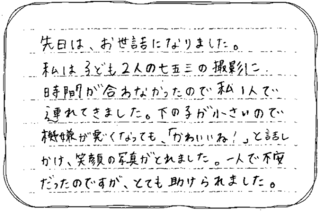 先日は、お世話になりました。
私は子ども2人の七五三の撮影に
時間が合わなかったので私1人で
連れてきました。下の子が小さいので
機嫌が悪くなっても、「かわいいね!」と話し
かけ、笑顔の写真がとれました。一人で不安
だったのですが、とても助けられました。